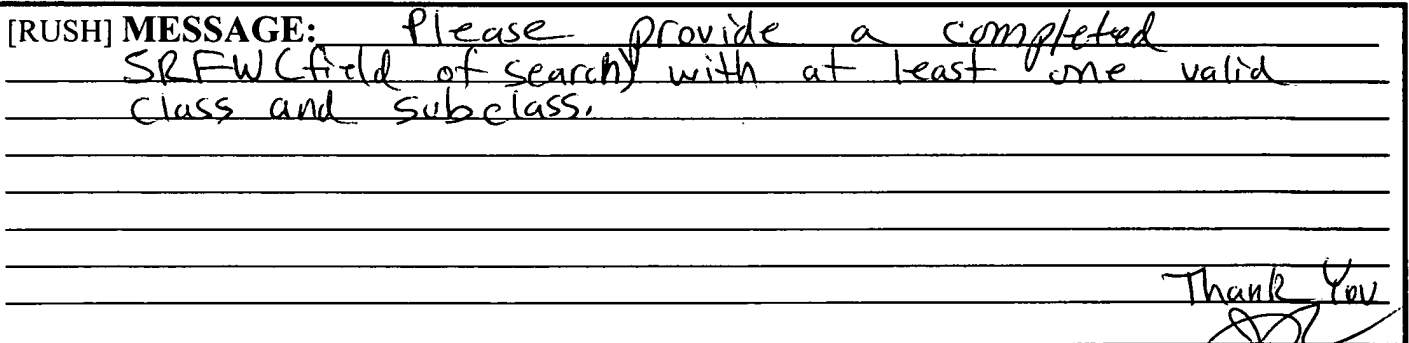 [RUSH] MESSAGE: Please provide a completed
SRFW (field of search) with at least one valid
class and subclass.
Thank You